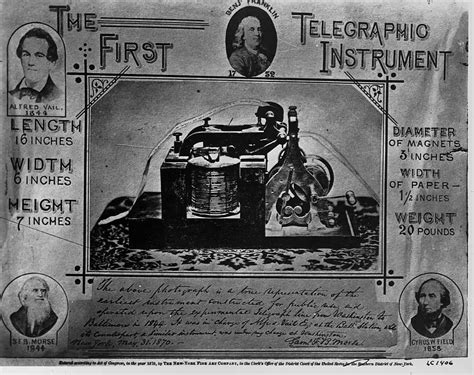 BENJ. FRANKLIN
THE FIRST
TELEGRAPHIC
INSTRUMENT
1752
ALFRED VAIL.
1844
LENGTH
16 INCHES
WIDTH
6 INCHES
HEIGHT
7 INCHES
DIAMETER
OF MAGNETS
3 INCHES
WIDTH
OF PAPER
1½ INCHES
WEIGHT
20 POUNDS
The above photograph is a true representation of the
earliest instrument constructed for public use, and
operated upon the experimental Telegraph line from Washington to
Baltimore in 1844. It was in charge of Alfred Vail, at the
instrument, was under my charge at Washington.
New York, May 31, 1870. Saml. F. B. Morse.
S.F.B. MORSE
1844
CYRUS W. FIELD
1858
Entered according to Act of Congress, in the year 1872, by THE NEW YORK FINE ART COMPANY, in the Clerk's Office of the District Court of the United States for the Southern District of New York.
LC1406